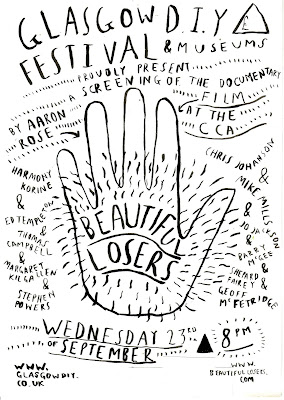 GLASGOW D.I.Y
FESTIVAL & MUSEUMS
PROUDLY PRESENT
A SCREENING OF THE DOCUMENTARY
FILM
AT THE
CCA
BY AARON
ROSE
HARMONY
KORINE
&
ED TEMPLETON
&
THOMAS
CAMPBELL
&
MARGARET
KILGALLEN
&
STEPHEN
POWERS
BEAUTIFUL
LOSERS
CHRIS JOHANSON
&
MIKE MILLS
&
JO JACKSON
&
BARRY
MCGEE
&
SHEPARD
FAIREY
&
GEOFF
MCFETRIDGE
WEDNESDAY 23RD
OF SEPTEMBER
8PM
WWW.
GLASGOWDIY.
CO.UK
WWW.
BEAUTIFULLOSERS.
COM